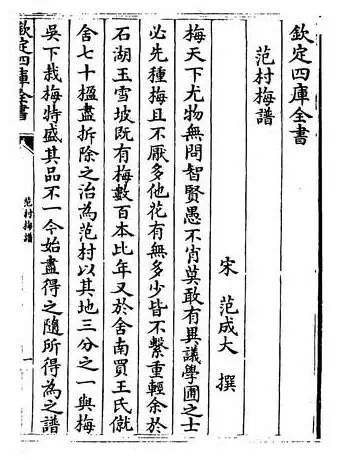 欽定四庫全書
范村梅譜
宋 范成大 撰
梅天下尤物無問智賢愚不肖莫敢有異議學圃之士
必先種梅且不厭多他花有無多少皆不繫重輕余於
石湖玉雪坡既有梅數百本比年又於舍南買王氏僦
舍七十楹盡拆除之治為范村以其地三分之一與梅
吳下栽梅特盛其品不一今始盡得之隨所得為之譜
欽定四庫全書
范村梅譜
一